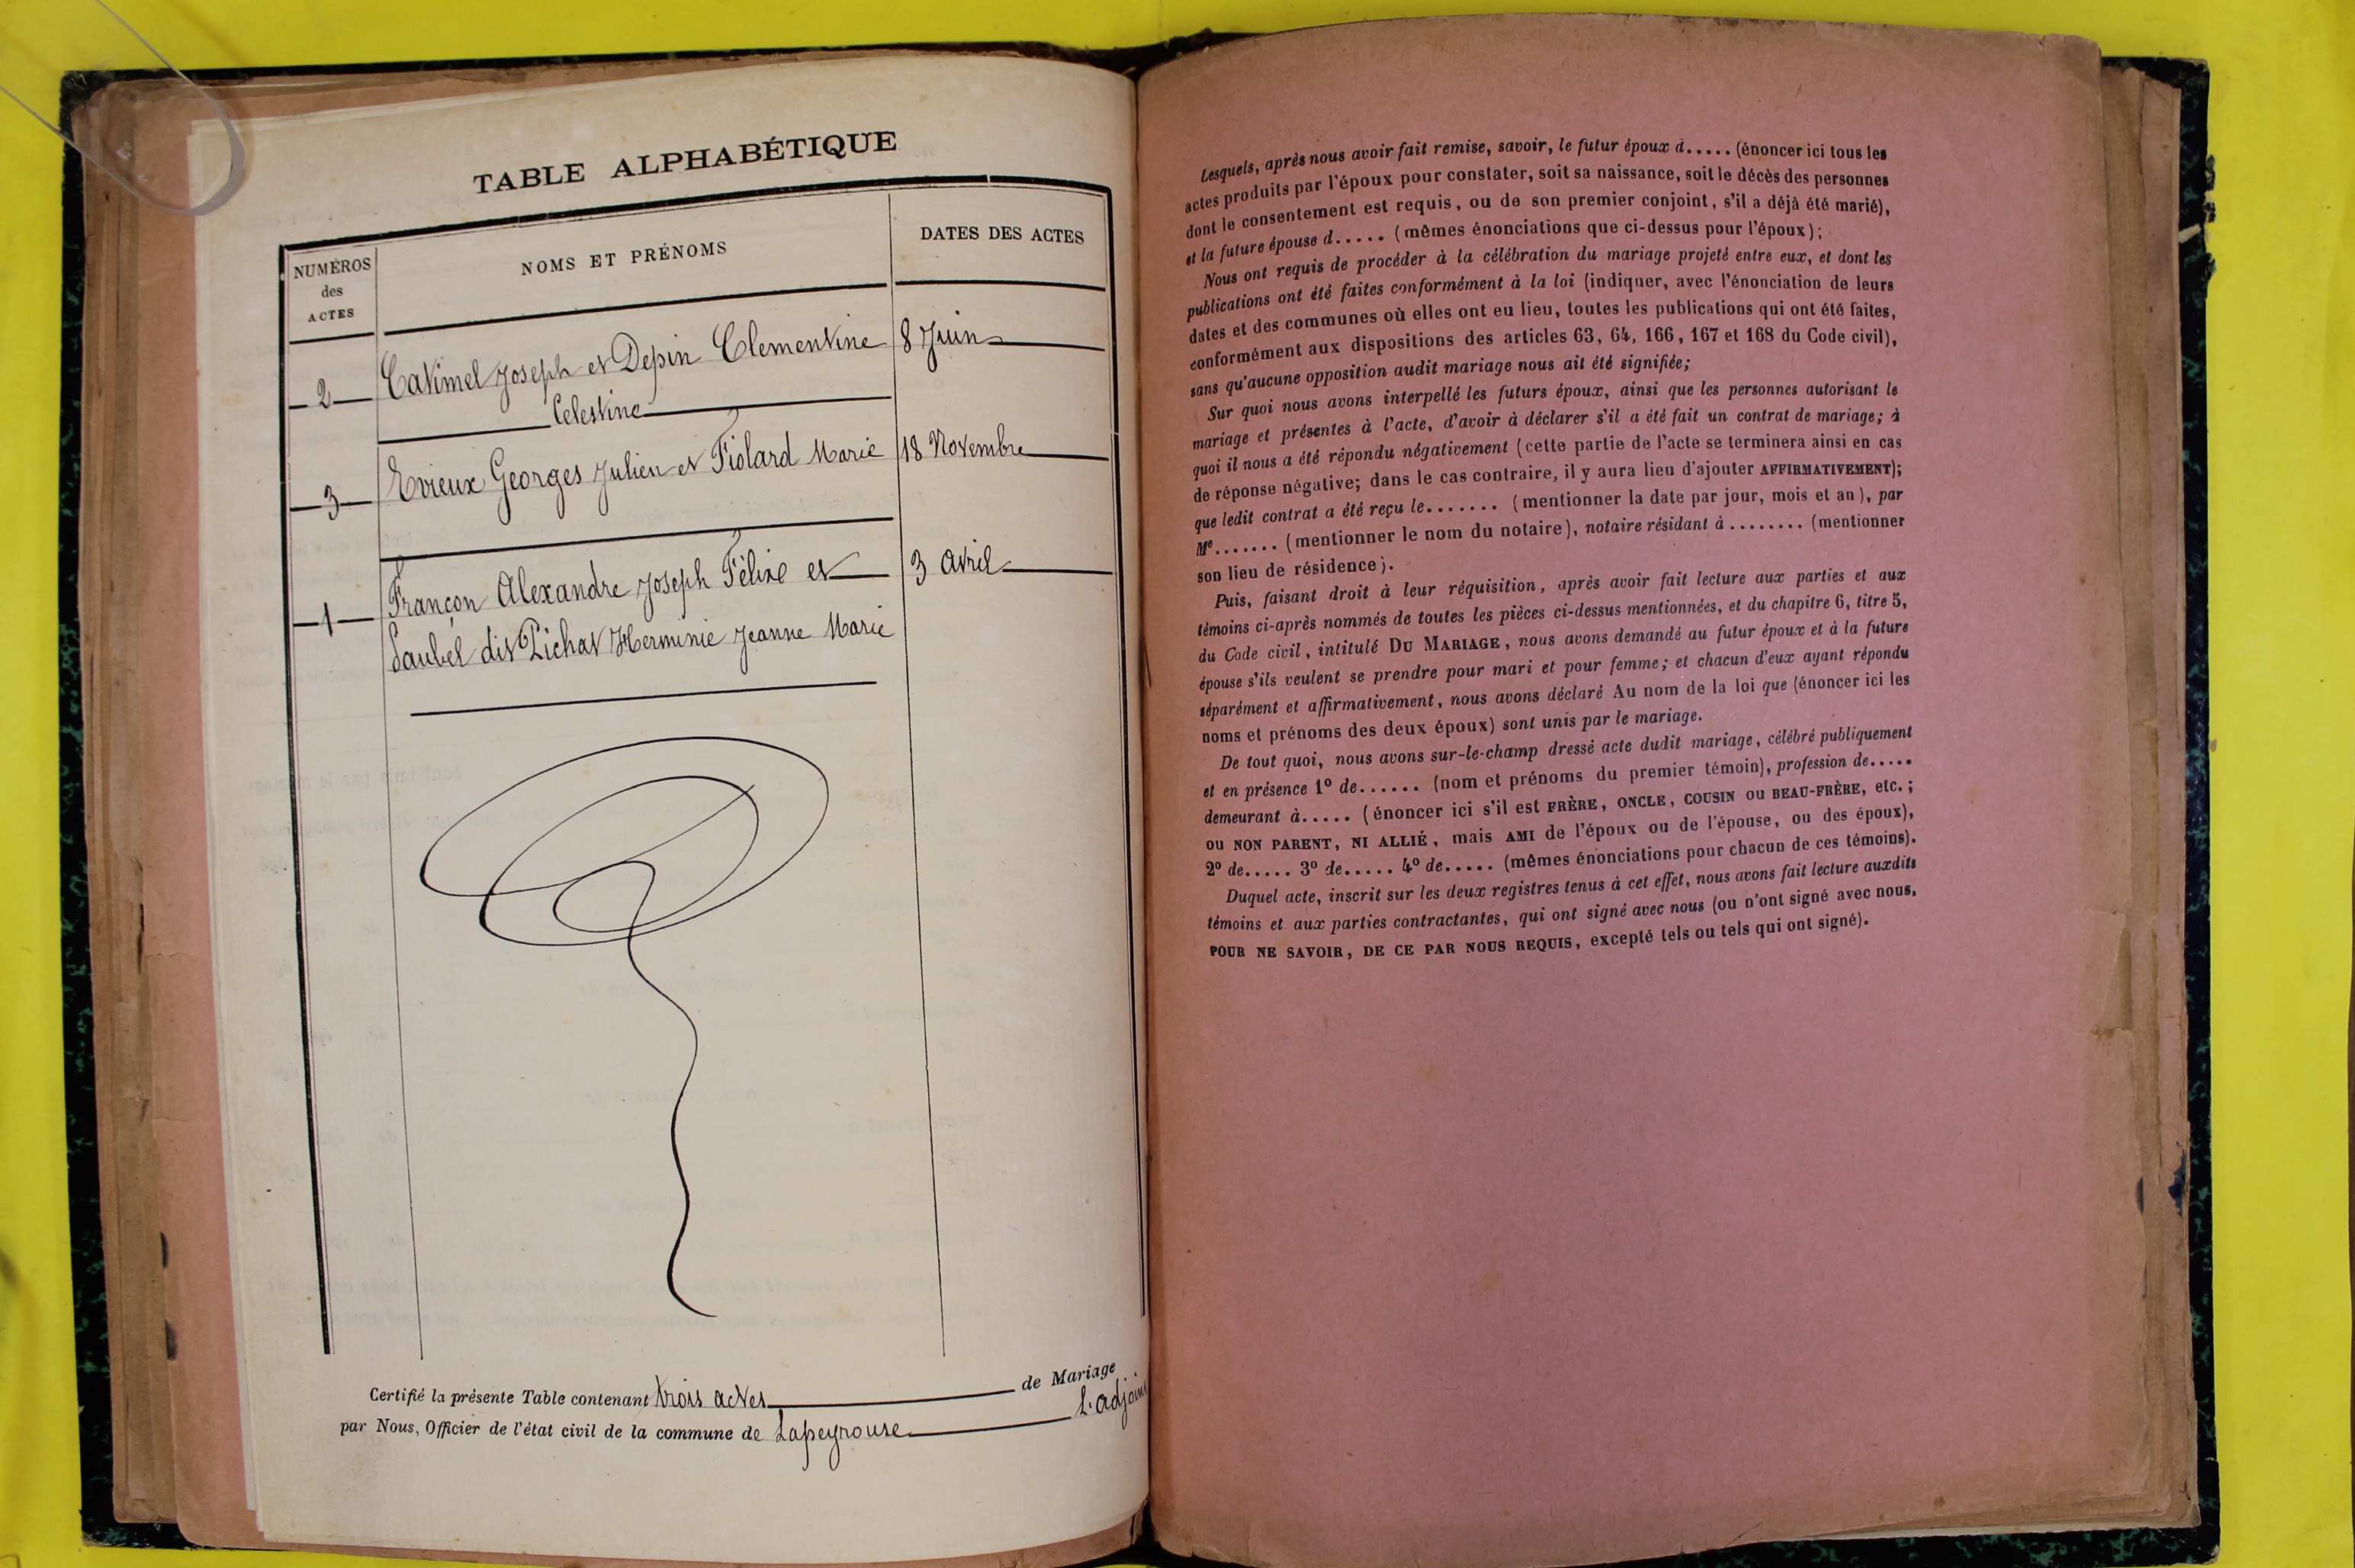 TABLE ALPHABÉTIQUE
NUMÉROS
des
ACTES
NOMS ET PRÉNOMS
DATES DES ACTES
2 Catimel Joseph et Depin Clementine 8 Juin
Celestine
3 Evieux Georges Julien et Fiolard Marie 18 Novembre
1 Françon Alexandre Joseph Félixe et 3 Avril
Saubel dit Pichat Herminie Jeanne Marie
Certifié la présente Table contenant trois actes de Mariage
par Nous, Officier de l'état civil de la commune de Lapeyrouse L'adjoint
Lesquels, après nous avoir fait remise, savoir, le futur époux d..... (énoncer ici tous les
actes produits par l'époux pour constater, soit sa naissance, soit le décès des personnes
dont le consentement est requis, ou de son premier conjoint, s'il a déjà été marié),
et la future épouse d..... (mêmes énonciations que ci-dessus pour l'époux);
Nous ont requis de procéder à la célébration du mariage projeté entre eux, et dont les
publications ont été faites conformément à la loi (indiquer, avec l'énonciation de leurs
dates et des communes où elles ont eu lieu, toutes les publications qui ont été faites,
conformément aux dispositions des articles 63, 64, 166, 167 et 168 du Code civil),
sans qu'aucune opposition audit mariage nous ait été signifiée;
Sur quoi nous avons interpellé les futurs époux, ainsi que les personnes autorisant le
mariage et présentes à l'acte, d'avoir à déclarer s'il a été fait un contrat de mariage; à
quoi il nous a été répondu négativement (cette partie de l'acte se terminera ainsi en cas
de réponse négative; dans le cas contraire, il y aura lieu d'ajouter AFFIRMATIVEMENT);
que ledit contrat a été reçu le....... (mentionner la date par jour, mois et an), par
Me....... (mentionner le nom du notaire), notaire résidant à ........ (mentionner
son lieu de résidence).
Puis, faisant droit à leur réquisition, après avoir fait lecture aux parties et aux
témoins ci-après nommés de toutes les pièces ci-dessus mentionnées, et du chapitre 6, titre 5,
du Code civil, intitulé DU MARIAGE, nous avons demandé au futur époux et à la future
épouse s'ils veulent se prendre pour mari et pour femme; et chacun d'eux ayant répondu
séparément et affirmativement, nous avons déclaré Au nom de la loi que (énoncer ici les
noms et prénoms des deux époux) sont unis par le mariage.
De tout quoi, nous avons sur-le-champ dressé acte dudit mariage, célébré publiquement
et en présence 1º de...... (nom et prénoms du premier témoin), profession de.....
demeurant à..... (énoncer ici s'il est FRÈRE, ONCLE, COUSIN ou BEAU-FRÈRE, etc.;
ou NON PARENT, NI ALLIÉ, mais AMI de l'époux ou de l'épouse, ou des époux),
2º de..... 3º de..... 4º de..... (mêmes énonciations pour chacun de ces témoins).
Duquel acte, inscrit sur les deux registres tenus à cet effet, nous avons fait lecture auxdits
témoins et aux parties contractantes, qui ont signé avec nous (ou n'ont signé avec nous,
POUR NE SAVOIR, DE CE PAR NOUS REQUIS, excepté tels ou tels qui ont signé).